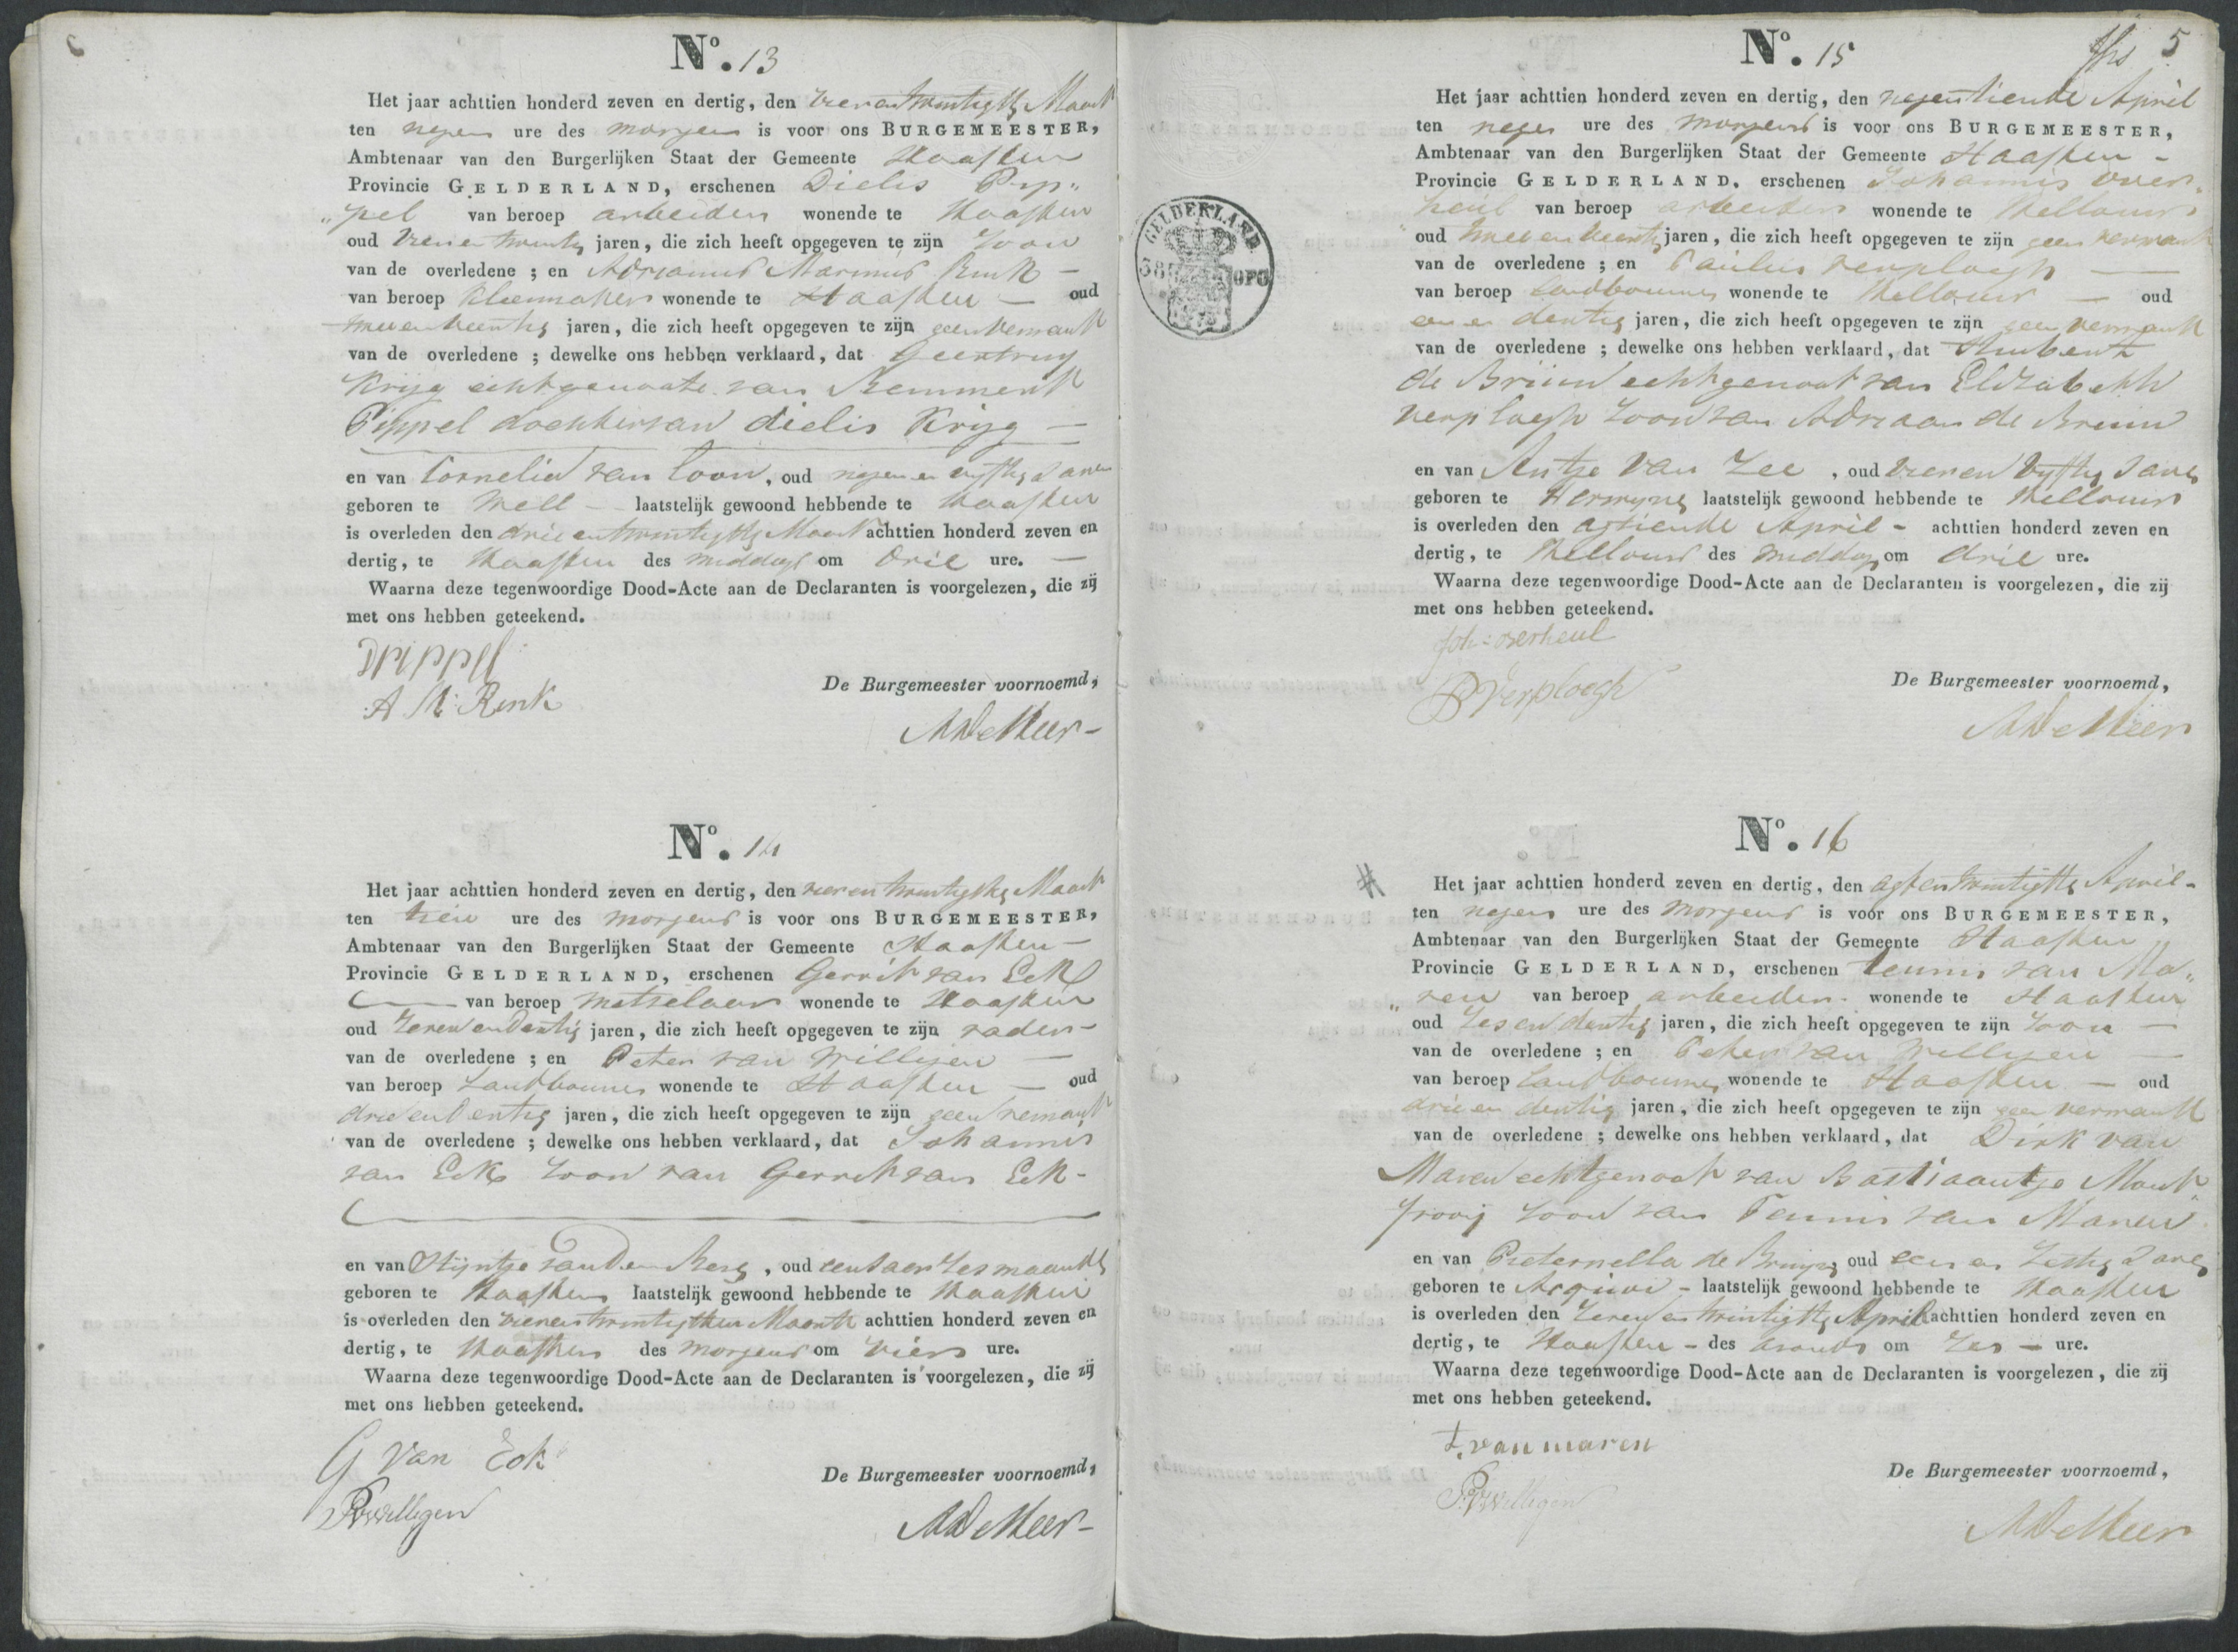 No. 13
Het jaar achttien honderd zeven en dertig, den vierentwintigste Maart
ten negen ure des morgens is voor ons BURGEMEESTER,
Ambtenaar van den Burgerlijken Staat der Gemeente Haaften
Provincie GELDERLAND, erschenen Dielis Pip„
„pel van beroep arbeider wonende te Haaften
oud vier en twintig jaren, die zich heeft opgegeven te zijn zoon
van de overledene; en Adrianus Marinus Renk —
van beroep kleermaker wonende te Haaften — oud
twee en veertig jaren, die zich heeft opgegeven te zijn geen vermant
van de overledene; dewelke ons hebben verklaard, dat Geertruy
Krijg echtgenoote van Remmert
Pippel dochter van dielis Krijg —
en van Cornelia van Loon, oud negen en vyftig Jaren
geboren te Well — laatstelijk gewoond hebbende te Haaften
is overleden den drie en twintigste Maart achttien honderd zeven en
dertig, te Haaften des middags om drie ure. —
Waarna deze tegenwoordige Dood-Acte aan de Declaranten is voorgelezen, die zij
met ons hebben geteekend.
D Pippel
A M: Renk
De Burgemeester voornoemd,
De Meer
No. 14
Het jaar achttien honderd zeven en dertig, den vier en twintigste Maart
ten tien ure des morgens is voor ons BURGEMEESTER,
Ambtenaar van den Burgerlijken Staat der Gemeente Haaften —
Provincie GELDERLAND, erschenen Gerrit van Eck
— van beroep metselaar wonende te Haaften
oud zeven en dertig jaren, die zich heeft opgegeven te zijn vader —
van de overledene; en Peter van Willigen —
van beroep Landbouwer wonende te Haaften — oud
drie en dertig jaren, die zich heeft opgegeven te zijn geen vermant
van de overledene; dewelke ons hebben verklaard, dat Johannis
van Eck zoon van Gerrit van Eck —
en van Stijntje van den Berg, oud een Jaer zes maanden
geboren te Haaften laatstelijk gewoond hebbende te Haaften
is overleden den vier en twintigsten Maart achttien honderd zeven en
dertig, te Haaften des morgens om vier ure.
Waarna deze tegenwoordige Dood-Acte aan de Declaranten is voorgelezen, die zij
met ons hebben geteekend.
G van Eck
P v Willigen
De Burgemeester voornoemd,
De Meer
5
No. 15
Het jaar achttien honderd zeven en dertig, den negentiende April
ten negen ure des morgens is voor ons BURGEMEESTER,
Ambtenaar van den Burgerlijken Staat der Gemeente Haaften —
Provincie GELDERLAND, erschenen Johannis Ver„
heul van beroep arbeider wonende te Hellouw
oud twee en veertig jaren, die zich heeft opgegeven te zijn geen vermant
van de overledene; en Paulus verploegh —
van beroep Landbouwer wonende te Hellouw — oud
een en dertig jaren, die zich heeft opgegeven te zijn geen vermant
van de overledene; dewelke ons hebben verklaard, dat Huibert
de Bruin echtgenoot van Elizabeth
verploegh zoon van Adriaan de Bruin
en van Antje van Zee, oud vier en vyftig Jaren
geboren te Herwynen laatstelijk gewoond hebbende te Hellouw
is overleden den agtiende April — achttien honderd zeven en
dertig, te Hellouw des middags om drie ure.
Waarna deze tegenwoordige Dood-Acte aan de Declaranten is voorgelezen, die zij
met ons hebben geteekend.
Joh: verheul
P Verploegh
De Burgemeester voornoemd,
De Meer
GELDERLAND
OPC
No. 16
# Het jaar achttien honderd zeven en dertig, den agt en twintigste April —
ten negen ure des morgens is voor ons BURGEMEESTER,
Ambtenaar van den Burgerlijken Staat der Gemeente Haaften
Provincie GELDERLAND, erschenen Teunis van Ma„
„ren van beroep arbeider wonende te Haaften
oud zes en dertig jaren, die zich heeft opgegeven te zijn zoon —
van de overledene; en Peter van Willigen —
van beroep Landbouwer wonende te Haaften — oud
drie en dertig jaren, die zich heeft opgegeven te zijn geen vermant
van de overledene; dewelke ons hebben verklaard, dat Dirk van
Maren echtgenoot van Bastiaantje Mont
frooij zoon van Teunis van Maren
en van Pieternella de Bruyn, oud een en zestig Jaren
geboren te Asperen — laatstelijk gewoond hebbende te Haaften
is overleden den zeven en twintigste April achttien honderd zeven en
dertig, te Haaften — des avonds om zes — ure.
Waarna deze tegenwoordige Dood-Acte aan de Declaranten is voorgelezen, die zij
met ons hebben geteekend.
t. van maren
P v Willigen
De Burgemeester voornoemd,
De Meer